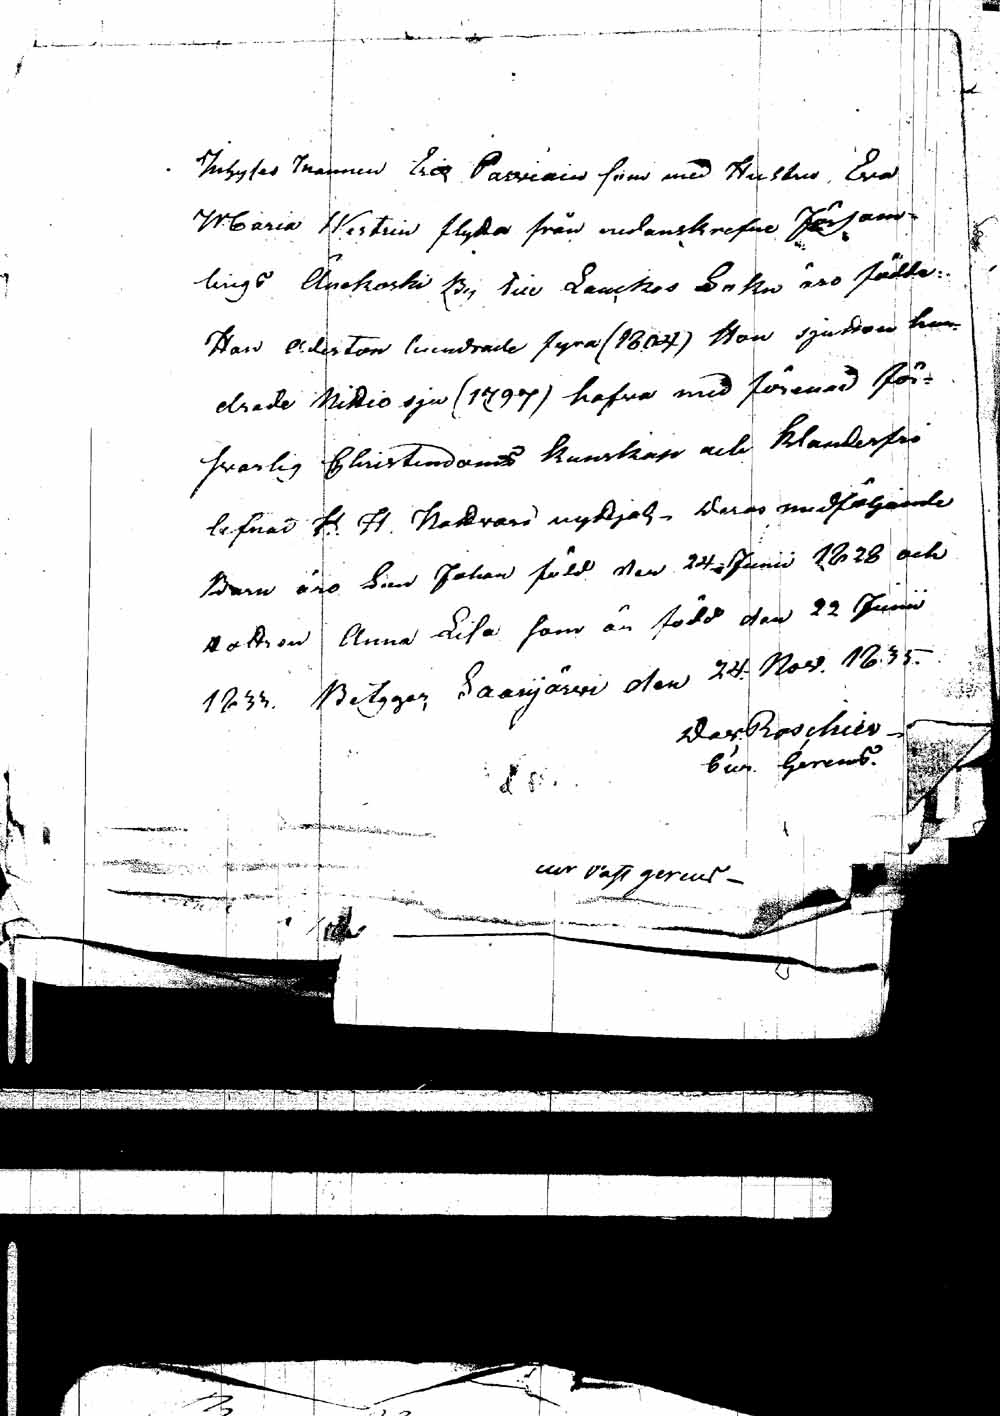 Inhyses mannen Eric Parviain som med Hustru Eva
Maria Westrin flytta från nedanskrefne Försam-
lings Äuckoski By till Lauckas Sokn äro födde:
Han aderton hundrade fyra (1804) Hon sjutton hun-
drade Nittio sju (1797) hafva med förenad för-
svarlig Christendoms kunskap och klanderfri
lefnad H. H. Nattvard nyttjat. Deras medföljande
Barn äro Son Johan född den 24 Junii 1828 och
dottren Anna Lisa som är född den 22 Junii
1833. Betygar, Saarijärvi den 24 Nov. 1835.
Dav. Roschier
Cur. Gerens.
cur past gerens